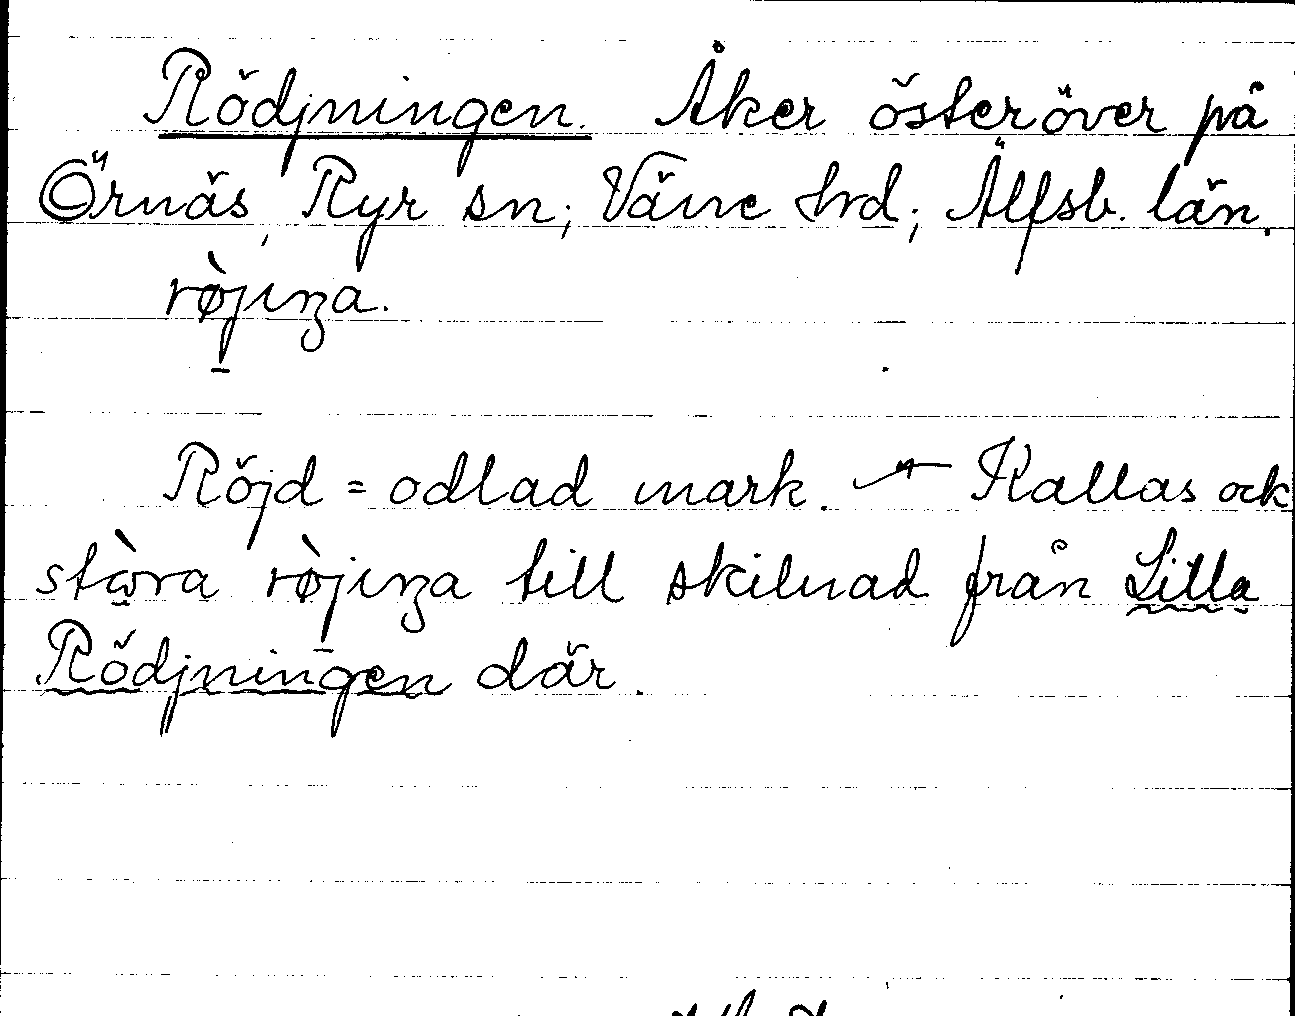 Rödjningen. Åker österöver på
Örnäs, Ryr sn; Väne hrd; Älfsb. län.
rø̀jıŋa.
Röjd = odlad mark. — Kallas ock
stɷ̀ra rø̀jıŋa till skilnad från Lilla
Rödjningen där.